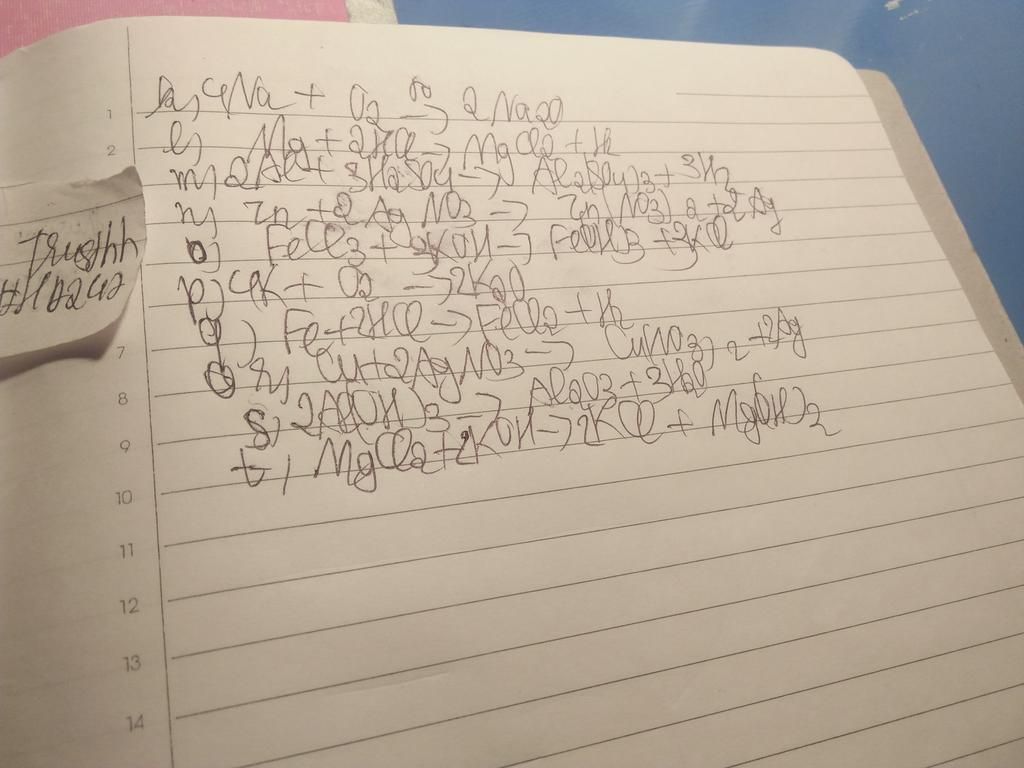 a, 4Na + O2 → 2Na2O
l) Mg + 2HCl → MgCl2 + H2
m, 2Al + 3H2SO4 → Al2SO4)3 + 3H2
n) Zn + 2AgNO3 → Zn(NO3)2 + 2Ag
o) FeCl3 + 3KOH → FeOH)3 + 3KCl
p) 4K + O2 → 2K2O
q) Fe + 2HCl → FeCl2 + H2
r, Cu + 2AgNO3 → CuNO3)2 + 2Ag
s, 2Al(OH)3 → Al2O3 + 3H2O
t, MgCl2 + 2KOH → 2KCl + MgOH)2
1
2
7
8
9
10
11
12
13
14